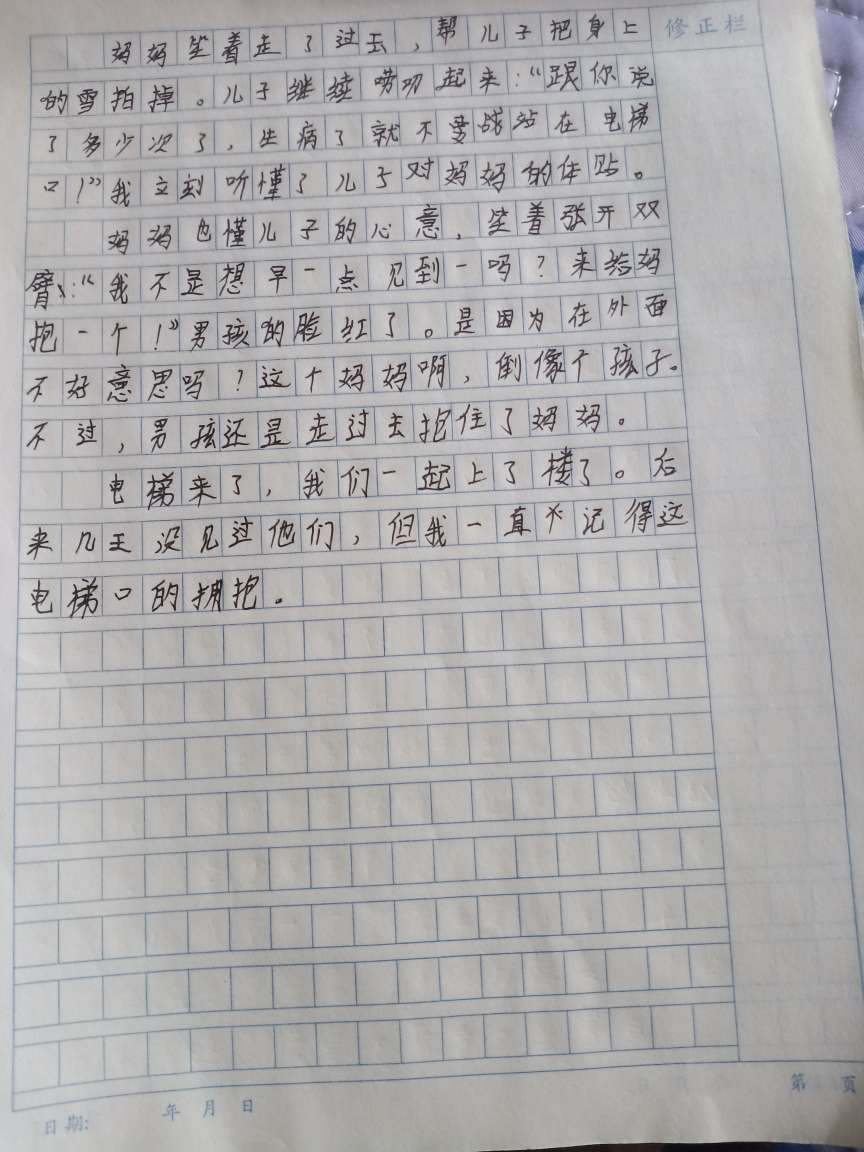 妈妈笑着走了过去，帮儿子把身上 修正栏
的雪拍掉。儿子继续唠叨起来：“跟你说
了多少次了，生病了就不要战站在电梯
口！”我立刻听懂了儿子对妈妈的体贴。
妈妈也懂儿子的心意，笑着张开双
臂：“我不是想早一点见到一吗？来给妈
抱一个！”男孩的脸红了。是因为在外面
不好意思吗？这个妈妈啊，倒像个孩子。
不过，男孩还是走过去抱住了妈妈。
电梯来了，我们一起上了楼了。后
来几天没见过他们，但我一直记得这
电梯口的拥抱。
日期： 年 月 日 第 页